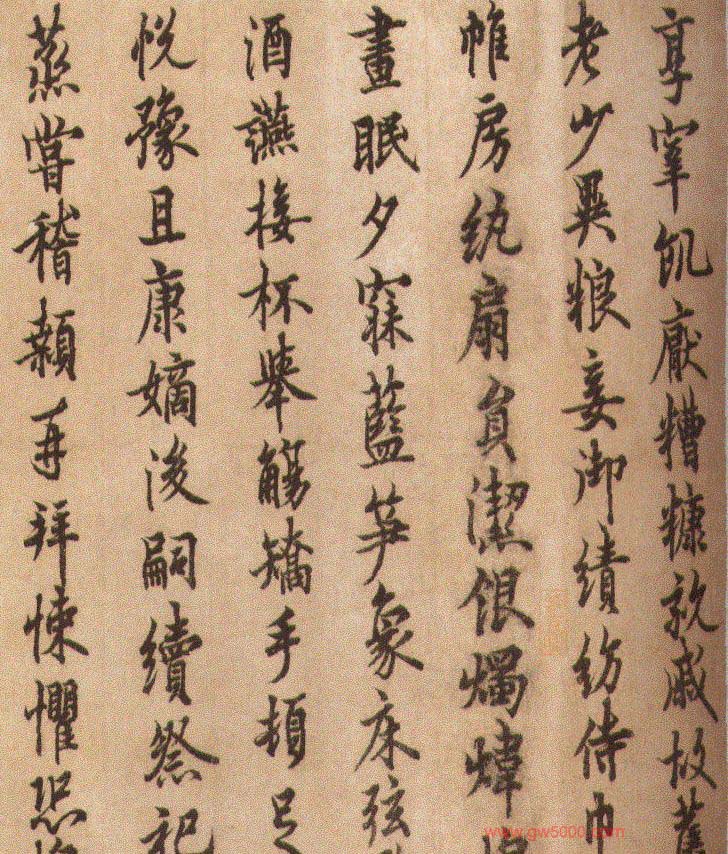 享宰飢厭糟糠親戚故舊
老少異粮妾御績紡侍巾
帷房紈扇員潔銀燭煒
晝眠夕寐藍笋象床弦
酒讌接杯舉觴矯手頓足
悅豫且康嫡後嗣續祭祀
蒸嘗稽顙再拜悚懼恐
www.gw5000.com